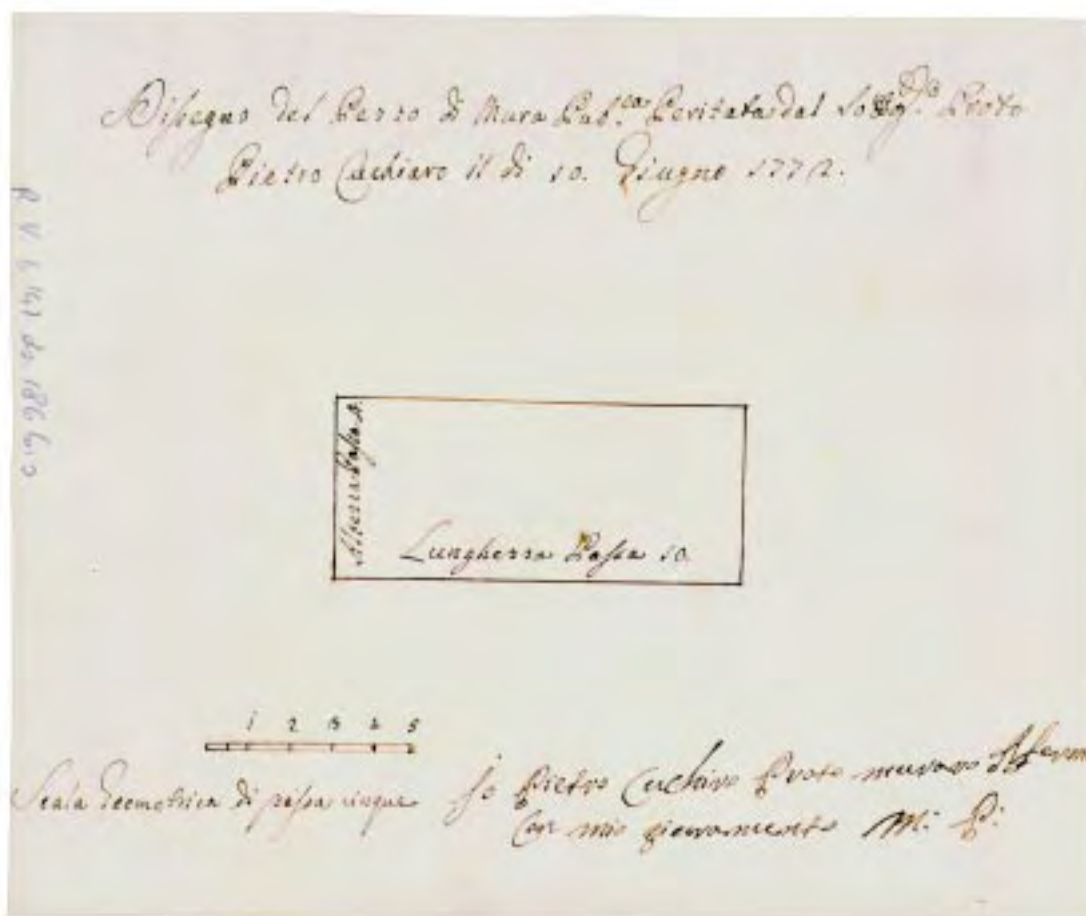 Dissegno del Pezzo di Mura Pub.ca Peritata dal Proto
Pietro Cuchiaro il dì 10. Giugno 1772.
Altezza Passa
Lunghezza Passa 10
1 2 3 4 5
Scala Geometrica di passa cinque
Io Pietro Cuchiro Proto muraro Aferm
Con mio giuramento M: P: